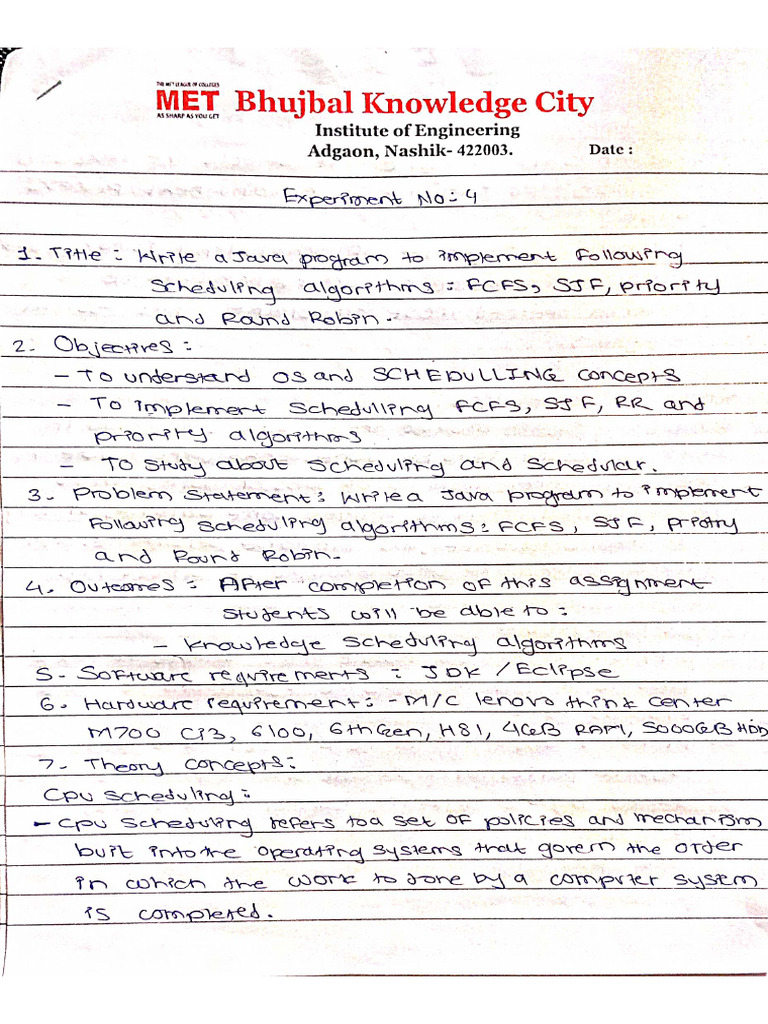 THE MET LEAGUE OF COLLEGES
MET Bhujbal Knowledge City
AS SHARP AS YOU GET
Institute of Engineering
Adgaon, Nashik- 422003. Date :
Experiment No:- 4
1. Title : Write a Java program to implement following
Scheduling algorithms : FCFS, SJF, priority
and Round Robin.
2. Objectives :
- To understand OS and SCHEDULLING concepts
- To implement Schedulling FCFS, SJF, RR and
priority algorithms
- To study about scheduling and Schedular.
3. Problem Statement : Write a Java program to implement
following scheduling algorithms : FCFS, SJF, Priotry
and Round Robin.
4. Outcomes : After completion of this assignment
students will be able to :
- knowledge scheduling algorithms
5. Software requirements : JDK / Eclipse
6. Hardware requirement : - M/C lenovo think center
M700 Ci3, 6100, 6th Gen, H81, 4GB RAM, 5000GB HDD
7. Theory concepts :
Cpu scheduling :
- Cpu scheduling refers to a set of policies and mechanism
built into the operating systems that govern the order
in which the work to done by a computer system
is completed.